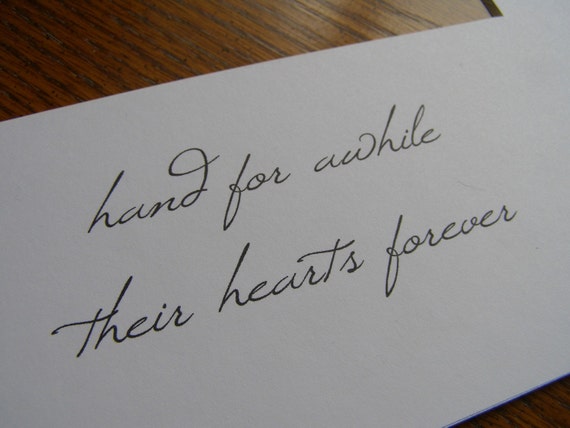 hand for awhile
their hearts forever